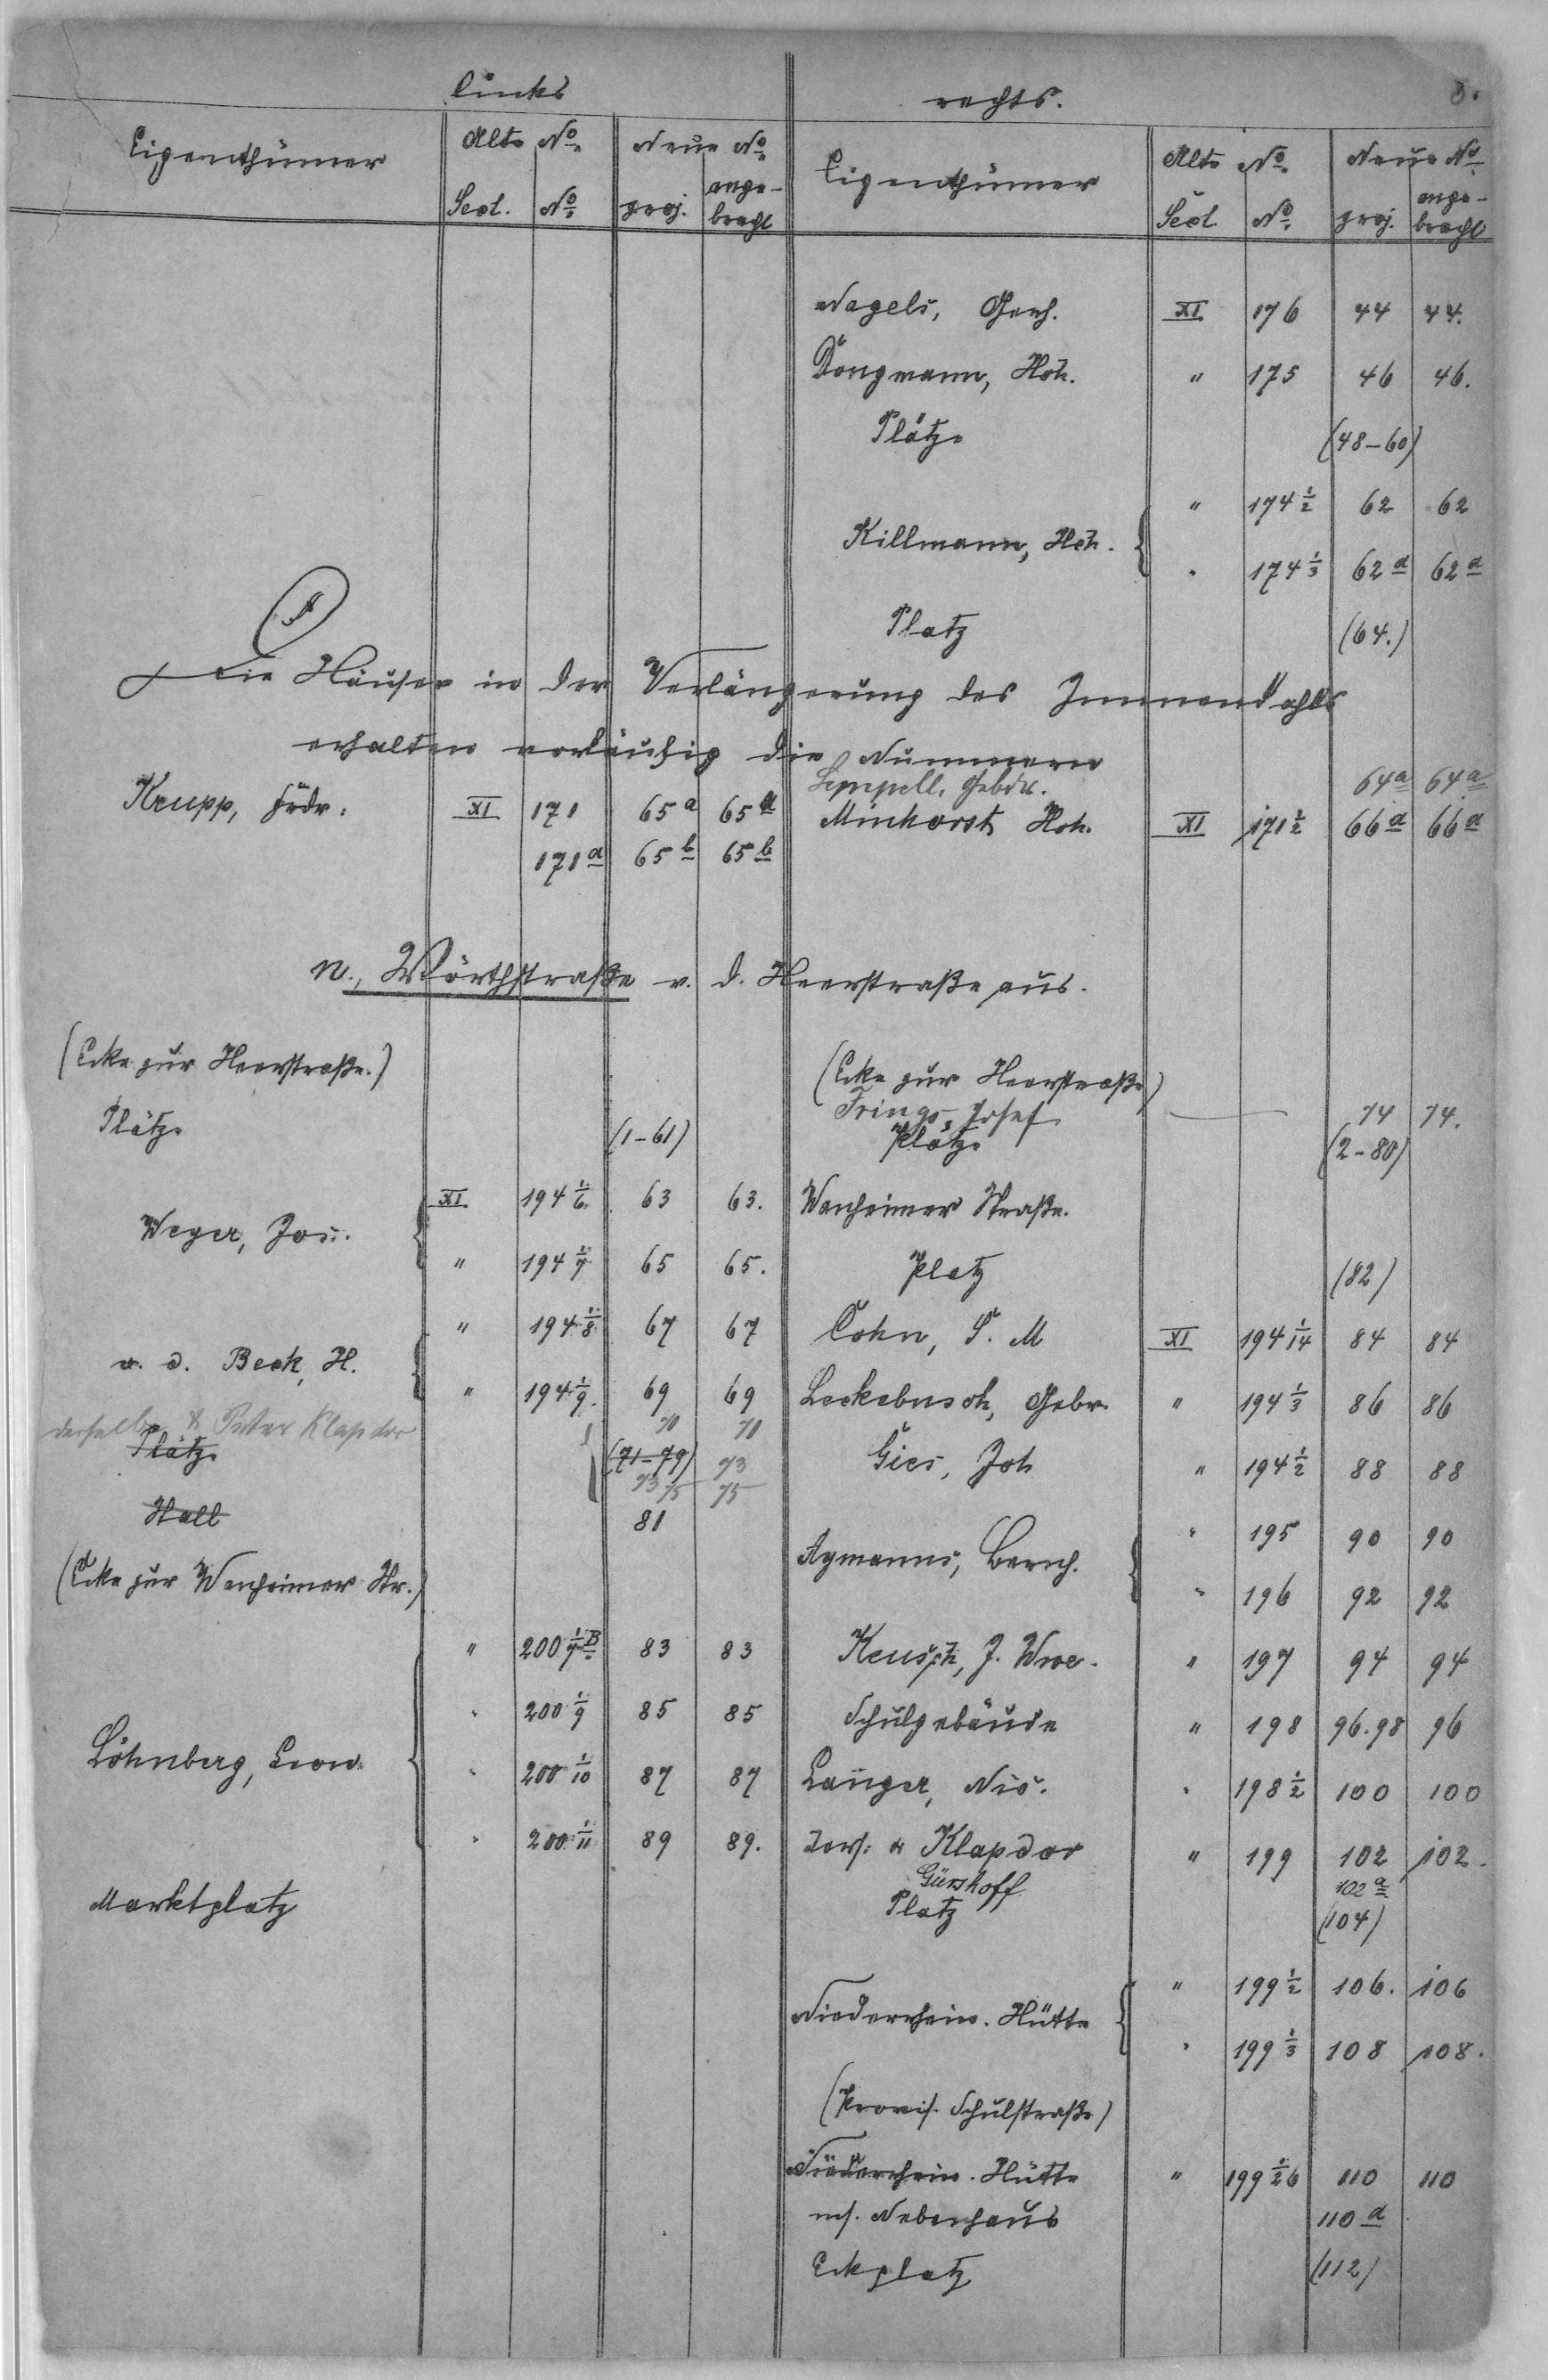 links rechts.
Eigenthümer Alte No. Neue No. Eigenthümer Alte No. Neue No.
Sect. No. proj. ange-bracht Sect. No. proj. ange-bracht
Nagels, Gerh. XI 176 44 44.
Dongmann, Hch. " 175 46 46.
Plätze (48-60)
" 174 1/2 62 62
Killmann, Hch. {
" 174 1/3 62 a 62 a
Platz (64.)
Die Häuser in der Verlängerung des Immendahls
erhalten vorläufig die Nummern
Gebdr. 64 a 64 a
Krupp, Frdr. XI 171 65 a 65 a Minhorst Hch. XI 171 1/2 66 a 66 a
171 a 65 b 65 b
n., Wörthstraße v. d. Heerstraße aus.
(Ecke zur Heerstraße.) (Ecke zur Heerstraße)
Frings, Josef 74 74.
Plätze (1-61) Plätze (2-80)
XI 194 1/6 63 63. Wanheimer Straße.
Weyer, Jos. {
" 194 1/7 65 65. Platz (82)
" 194 1/8 67 67 Cohn, S. M XI 194 1/14 84 84
v. d. Beck, H. {
" 194 1/9. 69 69 Leckebusch, Gebr. " 194 1/3 86 86
derselbe & Peter Klapdor 71 71
Plätze (71-79) 73 Gies, Joh " 194 1/2 88 88
73 75 75
Stall 81
" 195 90 90
Aymanns, Bernh. {
(Ecke zur Wanheimer Str.) " 196 92 92
" 200 1/7 B 83 83 Keusch, J. Wwe. " 197 94 94
" 200 1/9 85 85 Schulgebäude " 198 96.98 96
Löhnberg, Leon. {
" 200 1/10 87 87 Langer, Nic. " 198 1/2 100 100
" 200 1/11 89 89. Ders. & Klapdor " 199 102 102.
Gürshoff 102 a
Marktplatz Platz (104)
" 199 1/2 106. 106
Niederrhein. Hütte {
" 199 1/3 108 108.
(Provis. Schulstraße)
Niederrhein. Hütte " 199 1/26 110 110
ms. Nebenhaus 110 a
Eckplatz (112)